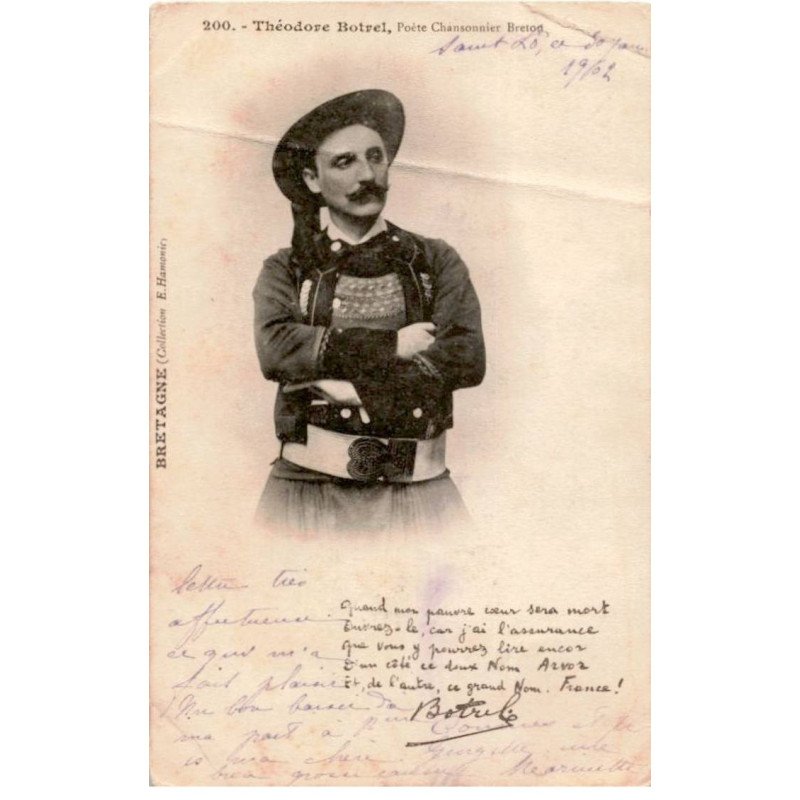 200. - Théodore Botrel, Poète Chansonnier Breton
Saint Lô,
1902
BRETAGNE (Collection E. Hamonic)
très
affectueuse
ce qui m'a
fait plaisir
Un bon baiser
ma part à
Quand mon pauvre cœur sera mort
Ouvrez-le, car j'ai l'assurance
Que vous y pourrez lire encor
D'un côté ce doux Nom Arvor
Et, de l'autre, ce grand Nom. France !
Botrel
ma chère
bien grosse